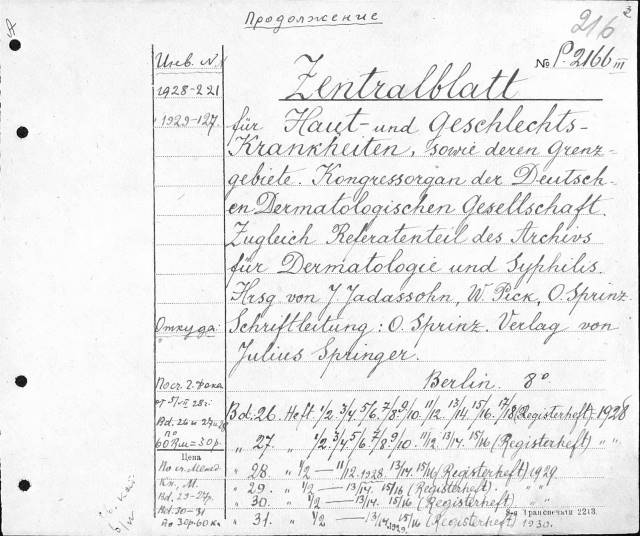 Продолжение
216
Инв. №
№ P-2166 III
Zentralblatt
1928-221
1929-127.
für Haut- und Geschlechts-
Krankheiten, sowie deren Grenz-
gebiete. Kongressorgan der Deutsch-
en Dermatologischen Gesellschaft.
Zugleich Referatenteil des Archivs
für Dermatologie und Syphilis.
Hrsg von J. Jadassohn, W. Pick, O. Sprinz
Откуда: Schriftleitung: O. Sprinz. Verlag von
Julius Springer.
Berlin. 8°
Bd. 26. Heft 1/2. 3/4. 5/6. 7/8. 9/10. 11/12. 13/14. 15/16. 17/18 (Registerheft) 1928
" 27. " 1/2. 3/4. 5/6. 7/8. 9/10. 11/12. 13/14. 15/16 (Registerheft) " "
Цена
" 28. " 1/2 — 11/12. 1928. 13/14. 15/16 (Registerheft) 1929
Кн. М.
" 29. " 1/2 — 13/14. 15/16 (Registerheft). " "
Bd. 29-27р.
" 30. " 1/2 — 13/14. 15/16 (Registerheft) " "
Bd. 30-31
по 30р. 60к
" 31. " 1/2 — 13/14. 1929. 15/16 (Registerheft) 1930.
Транспечати 2213.